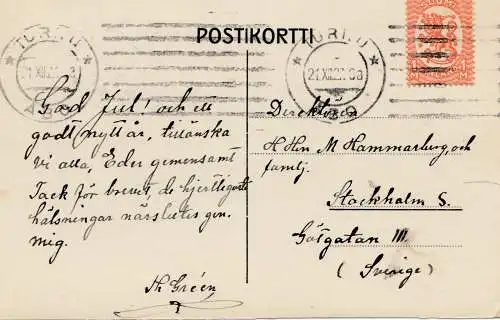 POSTIKORTTI
TURKU
ÅBO
TURKU
21.XII.20.
ÅBO
SUOMI
God Jul! och ett
godt nytt år, tillönska
vi alla, Eder gemensamt
Tack för brevet, de hjertligaste
hälsningar närslutes gen.
mig.
Th Gréen
Direktören
H Hrr M Hammarberg, och
familj.
Stockholm S.
Götgatan
(Sverige)